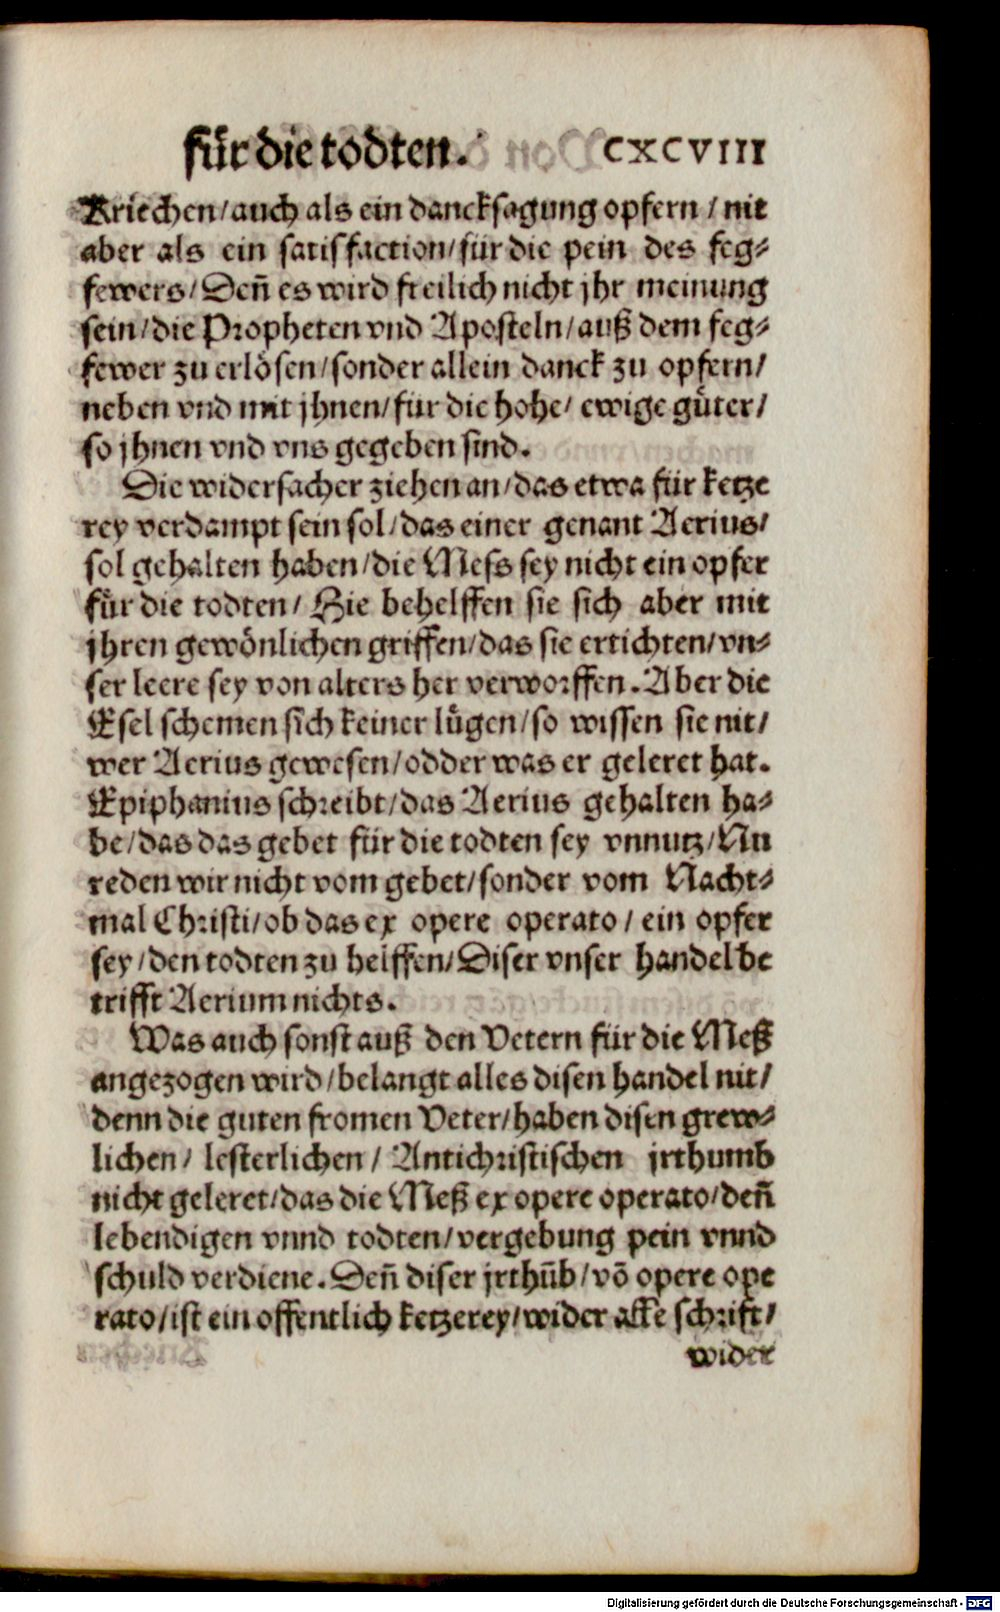 für die todten. CXCVIII
Kriechen/auch als ein dancksagung opfern/nit
aber als ein satisfaction/für die pein des feg⸗
fewers/Deñ es wird freilich nicht jhr meinung
sein/die Propheten vnd Aposteln/auß dem feg⸗
fewer zu erlösen/sonder allein danck zu opfern/
neben vnd mit jhnen/für die hohe/ ewige güter/
so jhnen vnd vns gegeben sind.
Die widersacher ziehen an/das etwa für ketze
rey verdampt sein sol/das einer genant Aerius/
sol gehalten haben/die Mess sey nicht ein opfer
für die todten/ Hie behelffen sie sich aber mit
jhren gewönlichen griffen/das sie ertichten/vn⸗
ser leere sey von alters her verworffen. Aber die
Esel schemen sich keiner lügen/so wissen sie nit/
wer Aerius gewesen/odder was er geleret hat.
Epiphanius schreibt/das Aerius gehalten ha⸗
be/das das gebet für die todten sey vnnutz/Nu
reden wir nicht vom gebet/sonder vom Nacht⸗
mal Christi/ob das ex opere operato/ein opfer
sey/den todten zu helffen/Diser vnser handel be
trifft Aerium nichts.
Was auch sonst auß den Vetern für die Meß
angezogen wird/belangt alles disen handel nit/
denn die guten fromen Veter/haben disen grew⸗
lichen/ lesterlichen/ Antichristischen jrthumb
nicht geleret/das die Meß ex opere operato/deñ
lebendigen vnnd todten/vergebung pein vnnd
schuld verdiene. Deñ diser jrthūb/vō opere ope
rato/ist ein offentlich ketzerey/wider alle schrift/
wider
Digitalisierung gefördert durch die Deutsche Forschungsgemeinschaft - DFG